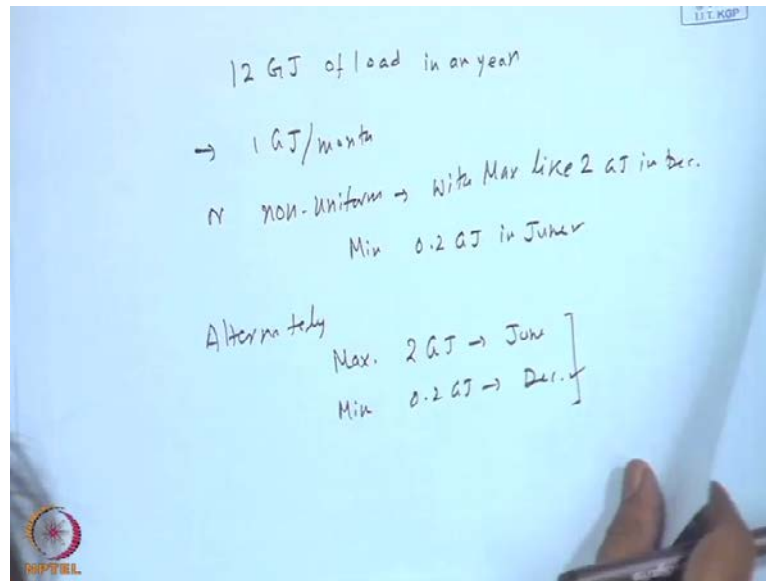 I.I.T. KGP
12 GJ of load in an year
→ 1 GJ/month
N non-uniform → with Max like 2 GJ in Dec.
Min 0.2 GJ in June
Alternately
Max. 2 GJ → June
Min 0.2 GJ → Dec.
NPTEL